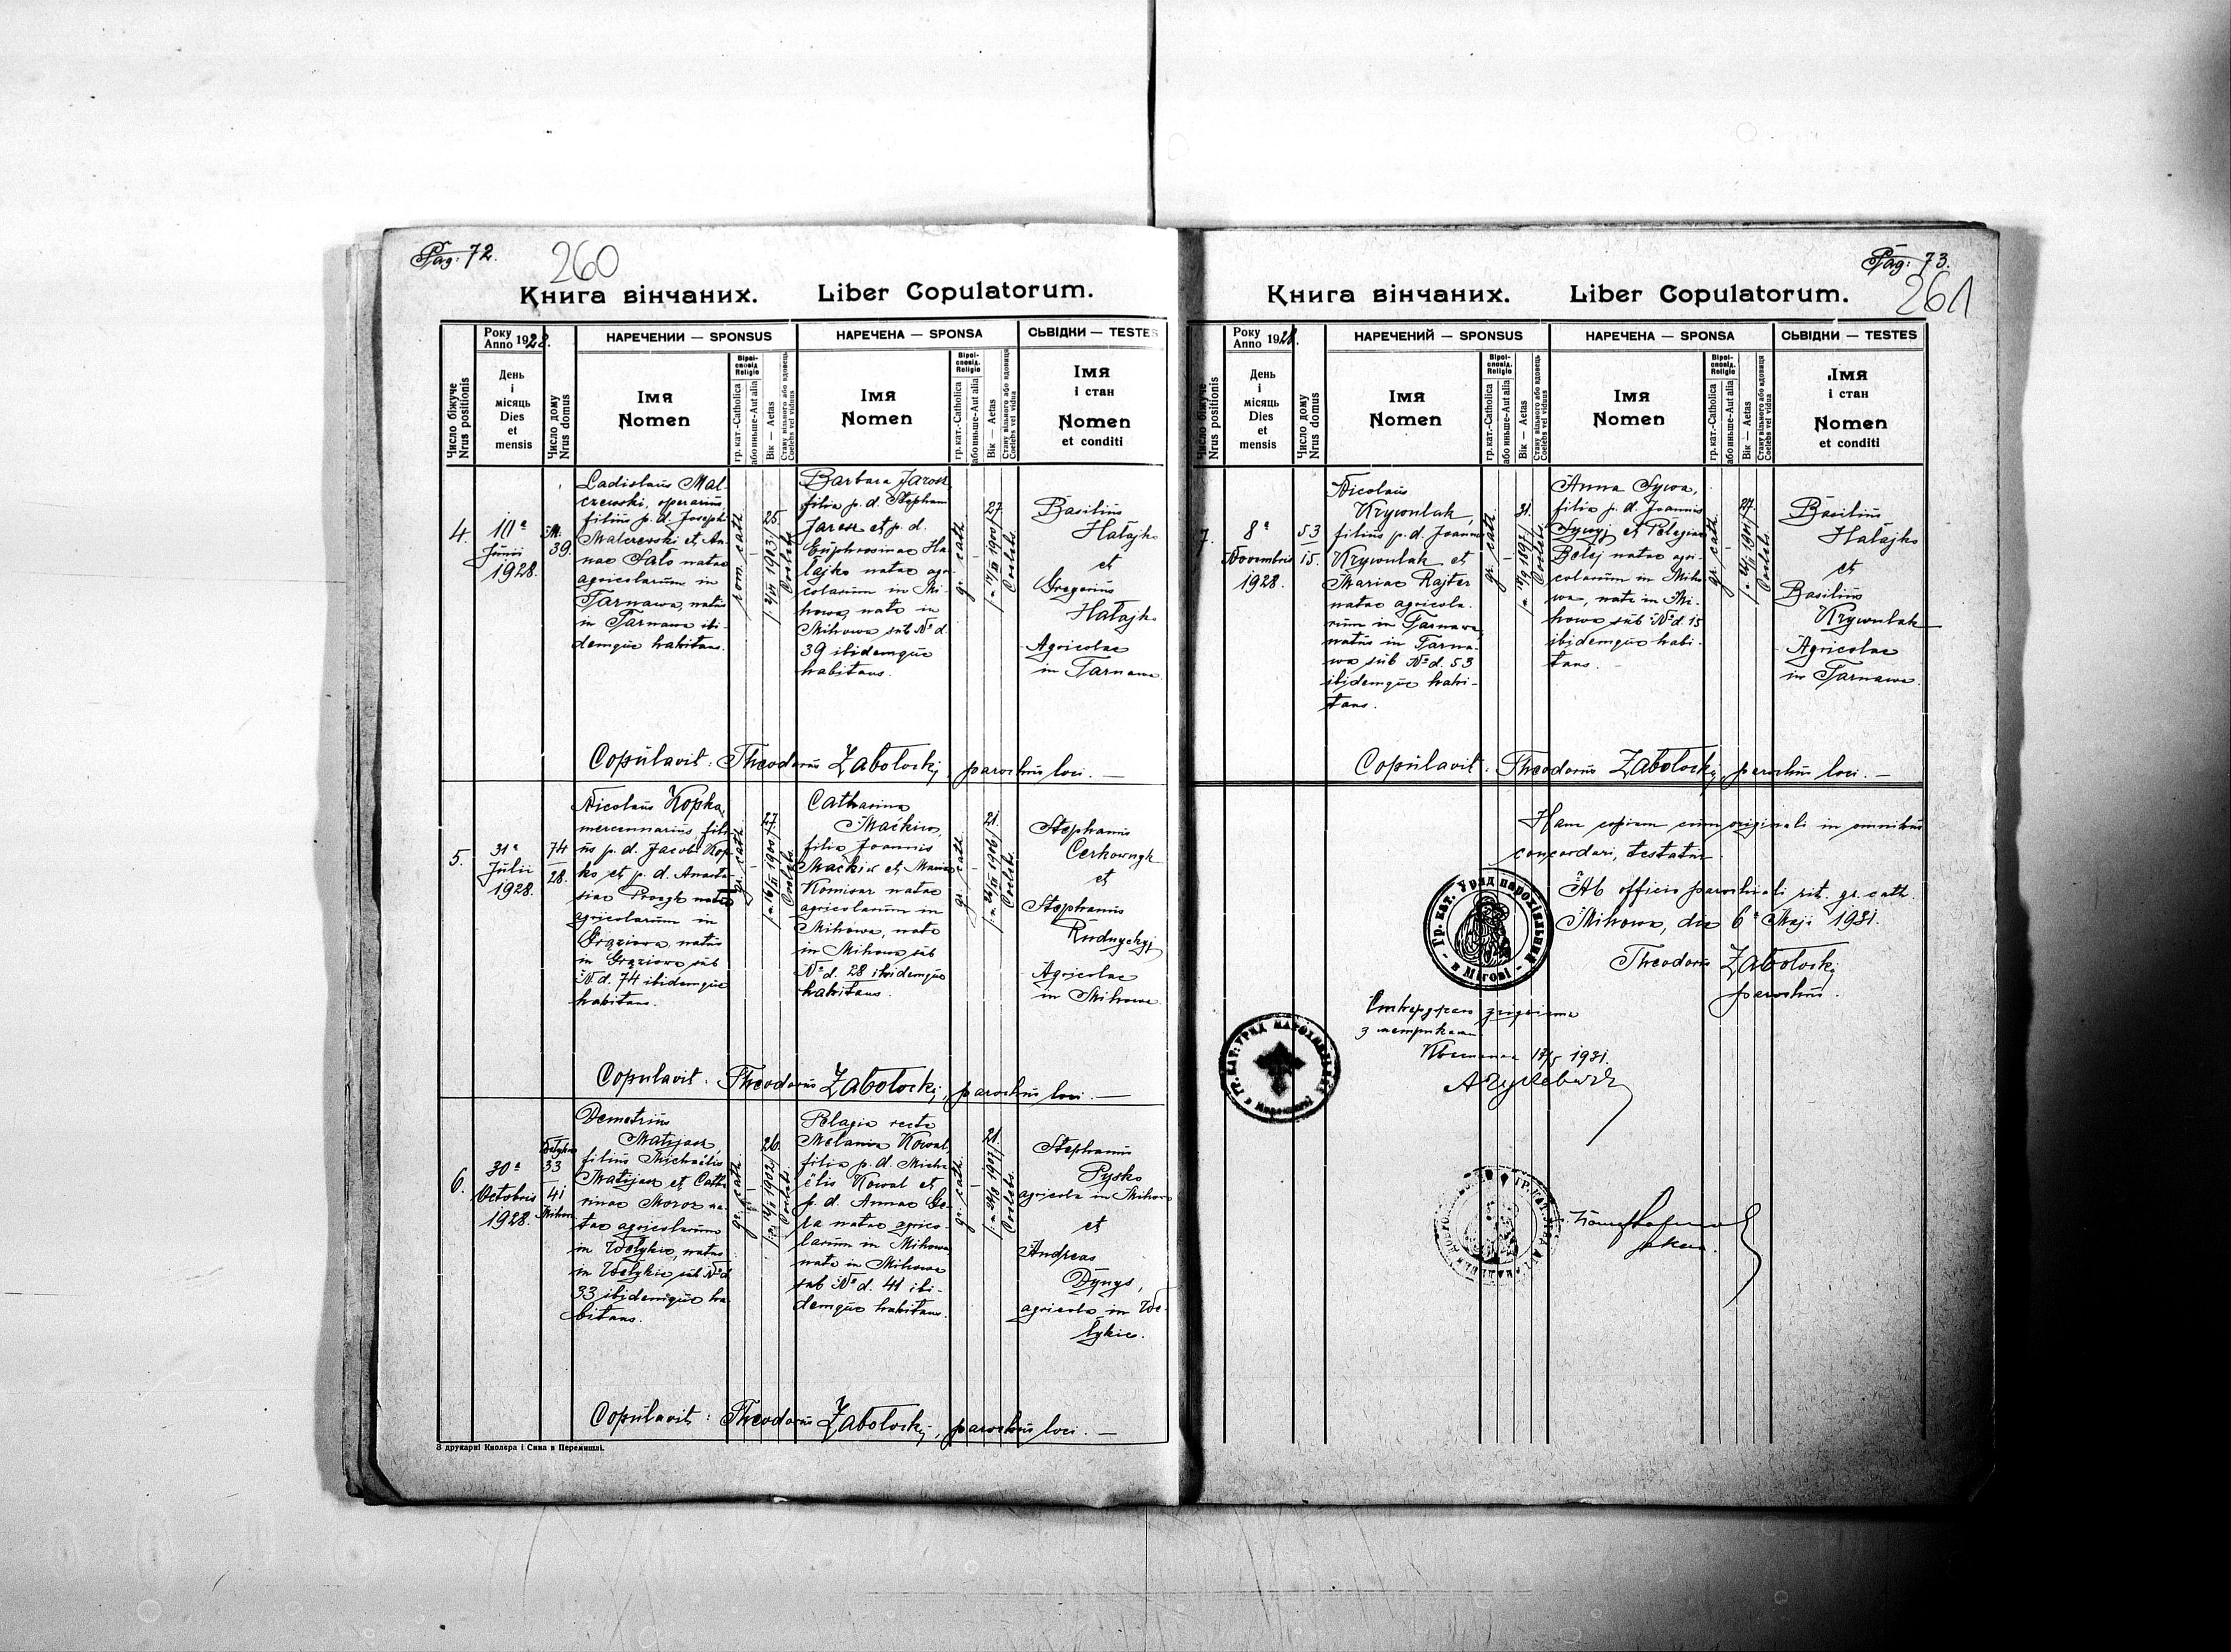 Pag: 72.
260
Книга вінчаних. Liber Copulatorum.
Число біжуче
Nrus positionis
Року
Anno 1928.
День
і
місяць
Dies
et
mensis
Число дому
Nrus domus
НАРЕЧЕНИЙ — SPONSUS
Імя
Nomen
Віроі-
сповід.
Religio
гр. кат.-Catholica
або иньше-Aut alia
Вік — Aetas
Стану вільного або вдовець
Coelebs vel viduus
НАРЕЧЕНА — SPONSA
Імя
Nomen
Віроі-
сповід.
Religio
гр. кат.-Catholica
або иньше-Aut alia
Вік — Aetas
Стану вільного або вдовиця
Coelebs vel vidua
СЬВІДКИ — TESTES
Імя
і стан
Nomen
et conditi
4.
10ª
Junii
1928.
M.
39.
Ladislaus Mal-
czewski, operarius,
filius p. d. Josephi
Malczewski et An-
nae Sało natae
agricolarum in
Tarnawa, natus
in Tarnawa ibi-
demque habitans.
rom. cath.
25.
Coelebs
Barbara Jarosz
filia p. d. Stephani
Jarosz et p. d.
Euphrosinae Ha-
łajko natae agri-
colarum in Mi-
howa, nata in
Mihowa sub Nº d.
39 ibidemque
habitans.
gr. cath.
27.
Coelebs.
Basilius
Hałajko
et
Gregorius
Hałajko
Agricolae
in Tarnawa.
Copulavit: Theodorus Zabolockij, parochus loci. —
5.
31ª
Julii
1928.
74
28.
Nicolaus Kopko,
mercennarius, fili-
us p. d. Jacobi Kop-
ko et p. d. Anasta-
siae natae
agricolarum in
Grąziowa natus
in Grąziowa sub
Nº d. 74 ibidemque
habitans.
gr. cath.
27.
Coelebs.
Catharina
Maćkiw,
filia Joannis
Maćkiw et Mariae
Komisar natae
agricolarum in
Mihowa, nata
in Mihowa sub
Nº d. 28 ibidemque
habitans.
gr. cath.
21.
Coelebs.
Stephanus
Cerkownyk
et
Stephanus
Rudnyckyj
Agricolae
in Mihowa.
Copulavit: Theodorus Zabolockij, parochus loci. —
6.
30ª
Octobris
1928.
33
41
Demetrius
Matijasz,
filius Michaelis
Matijasz et Catha-
rinae Moroz na-
tae agricolarum
in Wełykie, natus
in Wełykie sub Nº d.
33 ibidemque ha-
bitans.
gr. cath.
26.
Coelebs.
Pelagia recte
Melania Kowal,
filia p. d. Micha-
ëlis Kowal et
p. d. Annae
natae agrico-
larum in Mihowa
nata in Mihowa
sub Nº d. 41 ibi-
demque habitans.
gr. cath.
21.
Coelebs.
Stephanus
Pysko
agricola in Mihowa
et
Andreas
Dynys,
agricola in We-
łykie.
Copulavit: Theodorus Zabolockij, parochus loci. —
З друкарні Кнолєра і Сина в Перемишлі.
Pag: 73.
261
Книга вінчаних. Liber Copulatorum.
Число біжуче
Nrus positionis
Року
Anno 1928.
День
і
місяць
Dies
et
mensis
Число дому
Nrus domus
НАРЕЧЕНИЙ — SPONSUS
Імя
Nomen
Віроі-
сповід.
Religio
гр. кат.-Catholica
або иньше-Aut alia
Вік — Aetas
Стану вільного або вдовець
Coelebs vel viduus
НАРЕЧЕНА — SPONSA
Імя
Nomen
Віроі-
сповід.
Religio
гр. кат.-Catholica
або иньше-Aut alia
Вік — Aetas
Стану вільного або вдовиця
Coelebs vel vidua
СЬВІДКИ — TESTES
Імя
і стан
Nomen
et conditi
7.
8ª
Novembris
1928.
53
15.
Nicolaus
Krywulak,
filius p. d. Joannis
Krywulak et
Mariae Rajter
natae agricola-
rum in Tarnawa,
natus in Tarna-
wa sub Nº d. 53
ibidemque habi-
tans.
gr. cath.
31.
Coelebs.
Anna Sywa,
filia p. d. Joannis
Sywyj et Pelagiae
Bolej natae agri-
colarum in Miho-
wa, nata in Mi-
howa sub Nº d. 15
ibidemque habi-
tans.
gr. cath.
27.
Coelebs.
Basilius
Hałajko
et
Basilius
Krywulak
Agricolae
in Tarnawa.
Copulavit: Theodorus Zabolockij, parochus loci. —
Hanc copiam cum originali in omnibus
concordari, testatur
Ab officio parochiali rit. gr. cath.
Mihowa, die 6ª Maji 1931.
Theodorus Zabolockij
parochus.
Гр. кат. Уряд парохіяльний в Мігові
з метриками
1931.
ГР. КАТ. УРЯД ПАРОХІЯЛЬНИЙ